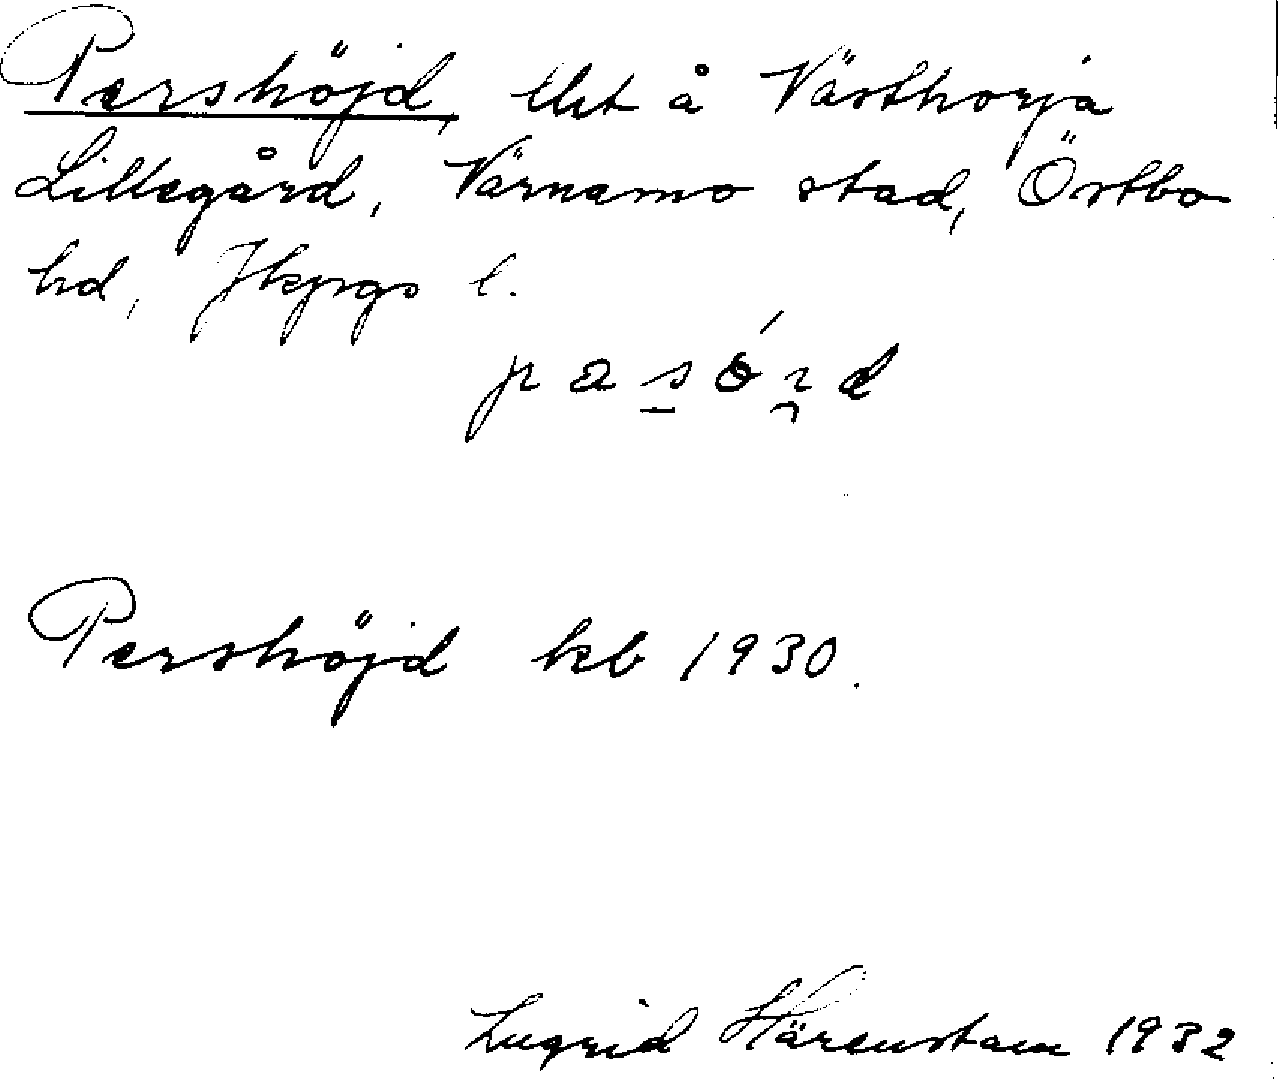 Pershöjd, lht å Västhorja
Lillegård, Värnamo stad, Östbo
hd, Jkpgs l.
pasód
Pershöjd kb 1930.
Ingrid Härenstam 1932